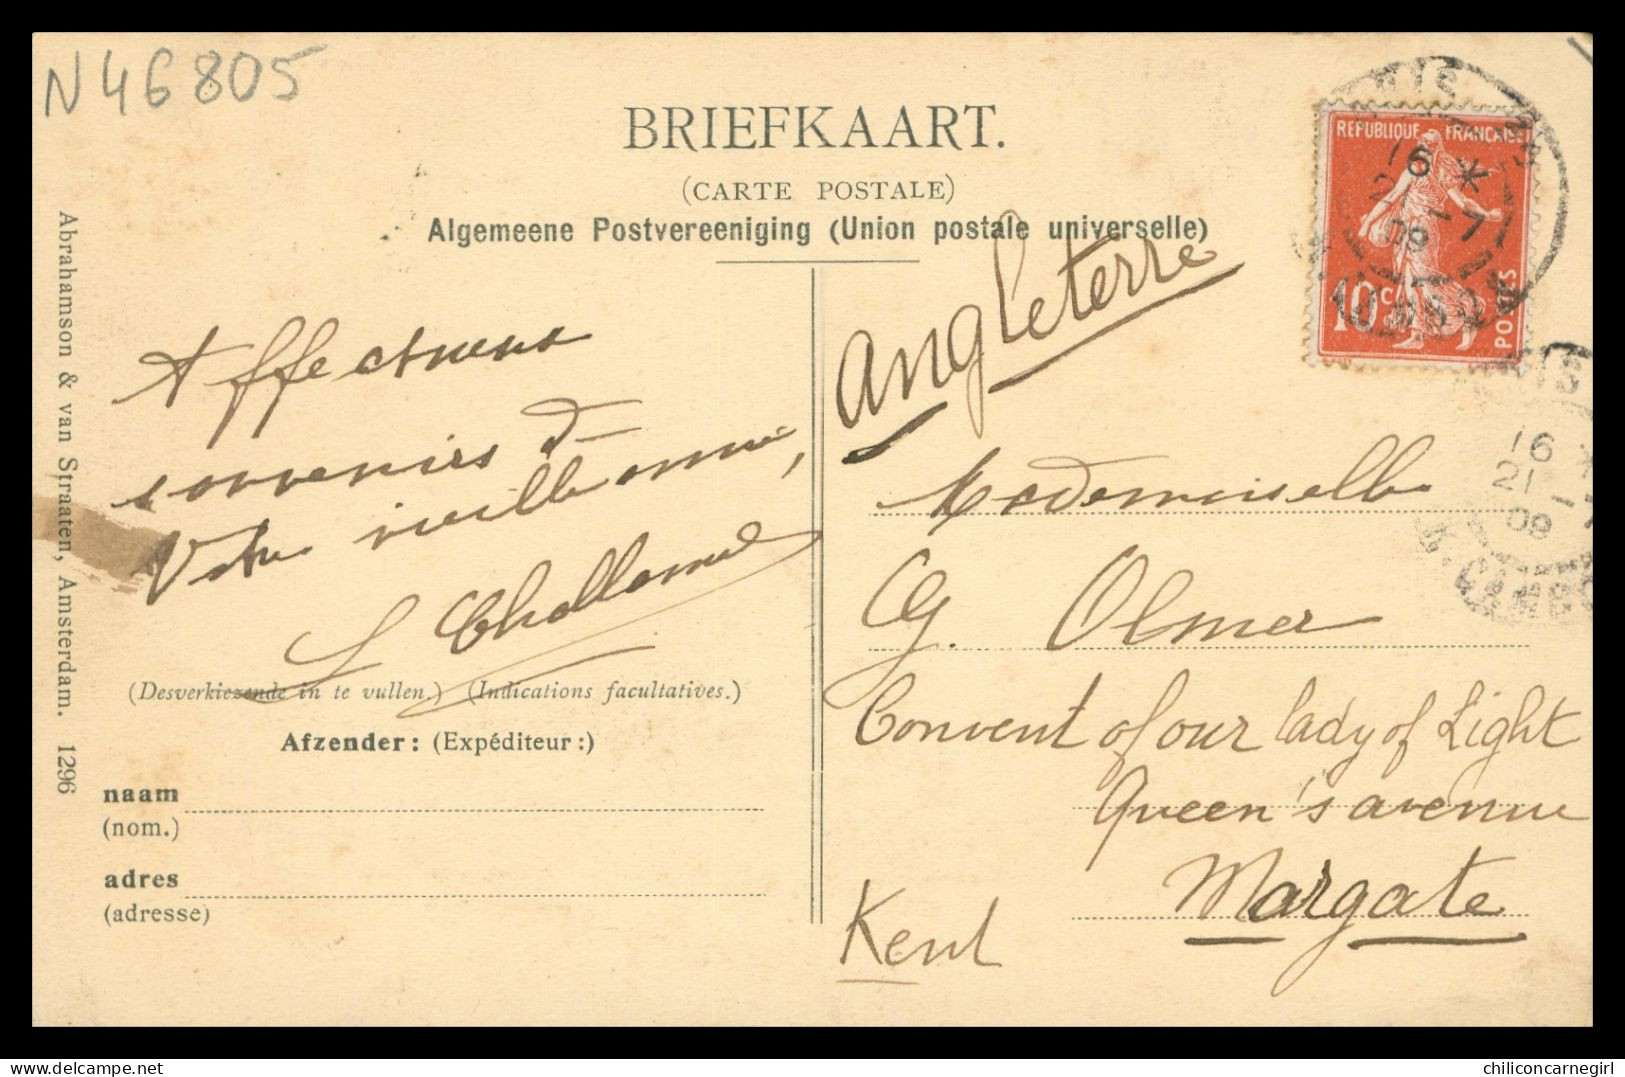 N46805
BRIEFKAART.
(CARTE POSTALE)
Algemeene Postvereeniging (Union postale universelle)
REPUBLIQUE FRANÇAISE
10c
POSTES
16 *
21 - 7
09
16 *
21 - 7
09
Angleterre
Affectueux
souvenirs d
Votre vieille amie,
(Desverkiezende in te vullen.) (Indications facultatives.)
Afzender: (Expéditeur:)
naam
(nom.)
adres
(adresse)
Mademoiselle
G. Olmer
Convent of our lady of Light
Queen's avenue
Margate
Kent
Abrahamson & van Straaten, Amsterdam. 1296
chiliconcarnegirl